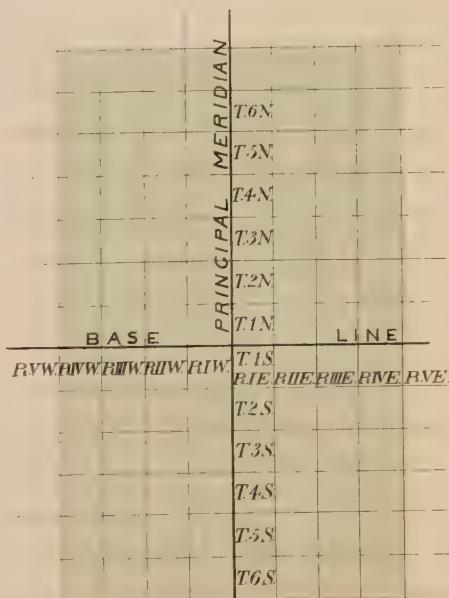 PRINCIPAL MERIDIAN
T.6N.
T.5N.
T.4N.
T.3N.
T.2N.
T.1N.
BASE LINE
R.V.W. R.IV.W. R.III.W. R.II.W. R.I.W. T.1S.
R.I.E. R.II.E. R.III.E. R.IV.E. R.V.E.
T.2S.
T.3S.
T.4S.
T.5S.
T.6S.